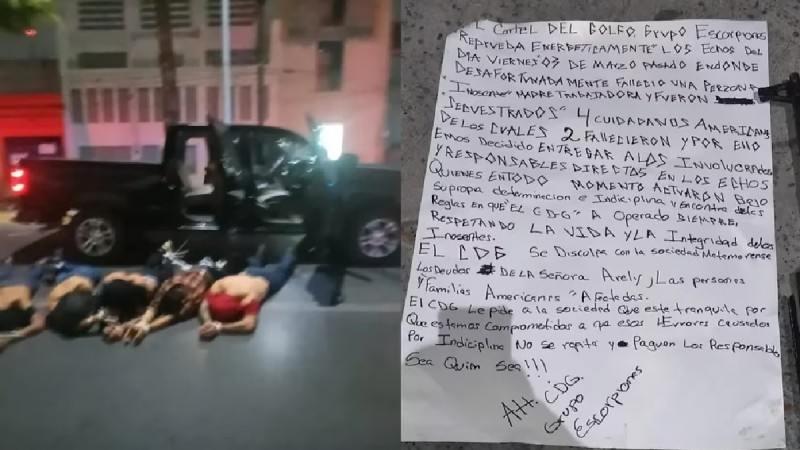 EL Cartel DEL GOLFO. Grupo Escorpiones
REPRUEBA ENERGETICAMENTE LOS Echos DEL
DIA VIERNES" 03 DE MARZO PASADO EN DONDE
DESAFORTUNADAMENTE FALLECIO UNA PERZONA
"Inosente" MADRE TRABAJADORA Y FUERON
SECUESTRADOS" 4 CUIDADANOS AMERICANOS
DE LOS CUALES 2 FALLECIERON Y POR ELLO
EMOS DECIDIDO ENTREGAR A LOS INVOLUCRADOS
Y RESPONSABLES DIRECTOS EN LOS ECHOS
QUIENES EN TODO MOMENTO ACTUARON Bajo
Su propia determinacion e Indiciplina y encontra de las
Reglas en QUE "EL CDG" A Operado SIEMPRE,
RESPETANDO LA VIDA Y LA Integridad de los
Inosentes.
EL CDG Se Disculpa con la sociedad Matamorense
Los Deudos DE LA SEÑORA Arely, y Las personas
Y Familias Americanas "Afectadas.
El CDG Le pide a la sociedad Que este tranquila por
Que estamos Comprometidos a que esos Errores Causados
Por Indiciplina No se repita y Paguen Los Responsables
Sea Quim Sea!!!
Att. CDG.
Grupo
Escorpiones